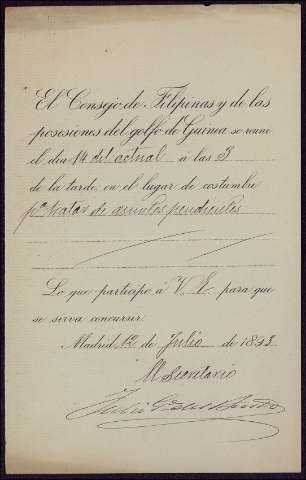 El Consejo de Filipinas y de las
posesiones del golfo de Guinea se reune
el dia 14 del actual á las 3
de la tarde en el lugar de costumbre
pª tratar de asuntos pendientes
Lo que participo á V. E. para que
se sirva concurrir.
Madrid 12 de Julio de 1893.
El Secretario